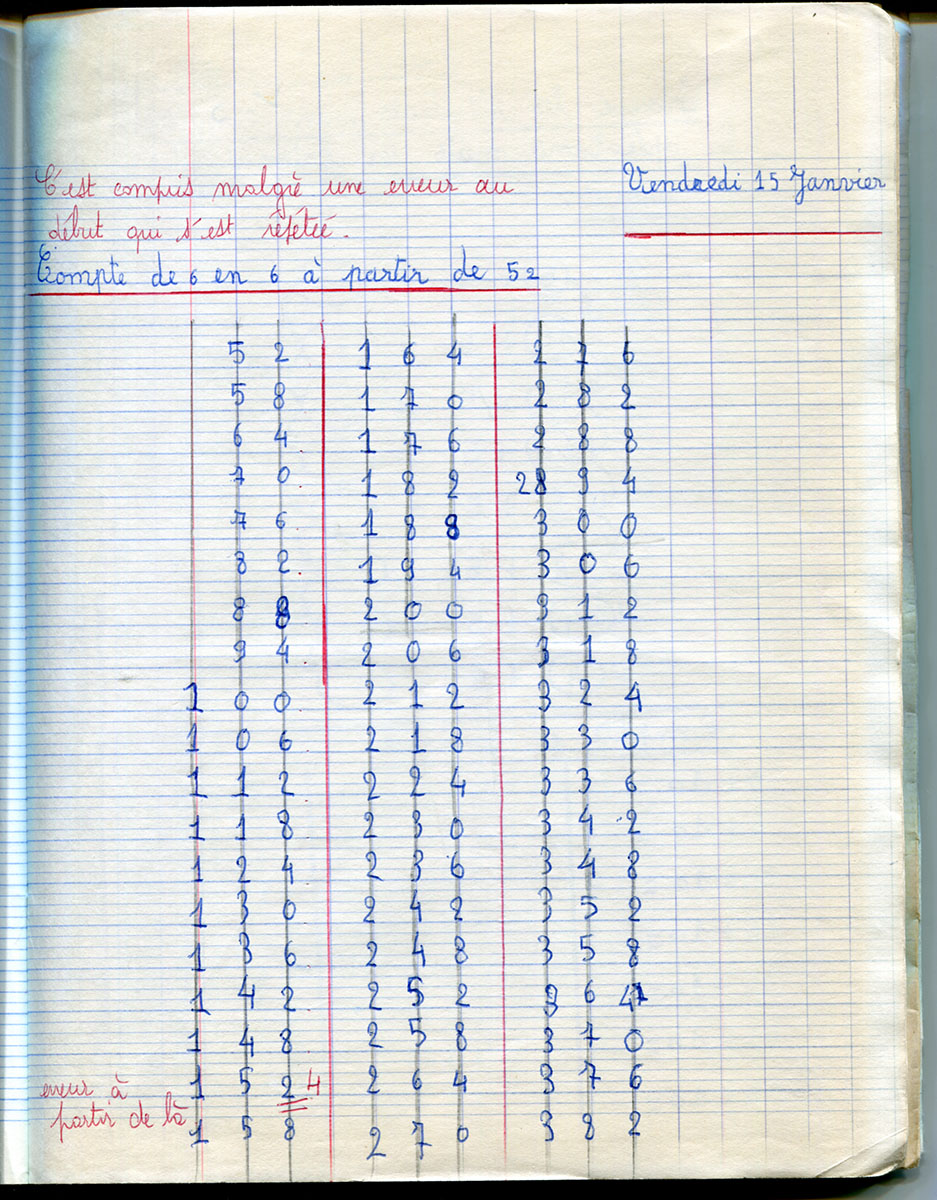 C'est compris malgré une erreur au
Vendredi 15 Janvier
début qui s'est répétée.
Compte de 6 en 6 à partir de 52
52 164 276
58 170 282
64 176 288
70 182 28 9 4
76 188 300
82 194 306
88 200 312
94 206 318
100 212 324
106 218 330
112 224 336
118 230 342
124 236 348
130 242 352
136 248 358
142 252 364
148 258 370
erreur à 152 4 264 376
partir de là 158 270 382